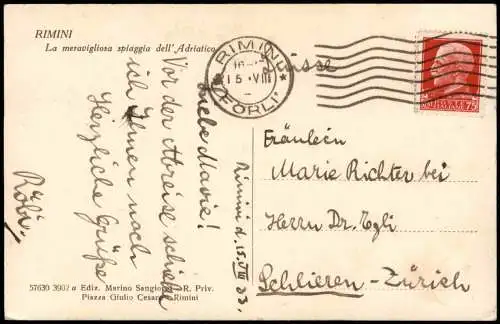 RIMINI
La meravigliosa spiaggia dell'Adriatico
RIMINI
15 · VIII
(FORLI')
Suisse
75
Rimini d. 15. VIII 33.
Liebe Marie!
Vor der Abreise schicke
ich Ihnen noch
Herzliche Grüße
Röbi.
Fräulein
Marie Richter bei
Herrn Dr. Egli
Schlieren-Zürich
57630 3907 a Ediz. Marino Sangiorgi - R. Priv.
Piazza Giulio Cesare - Rimini